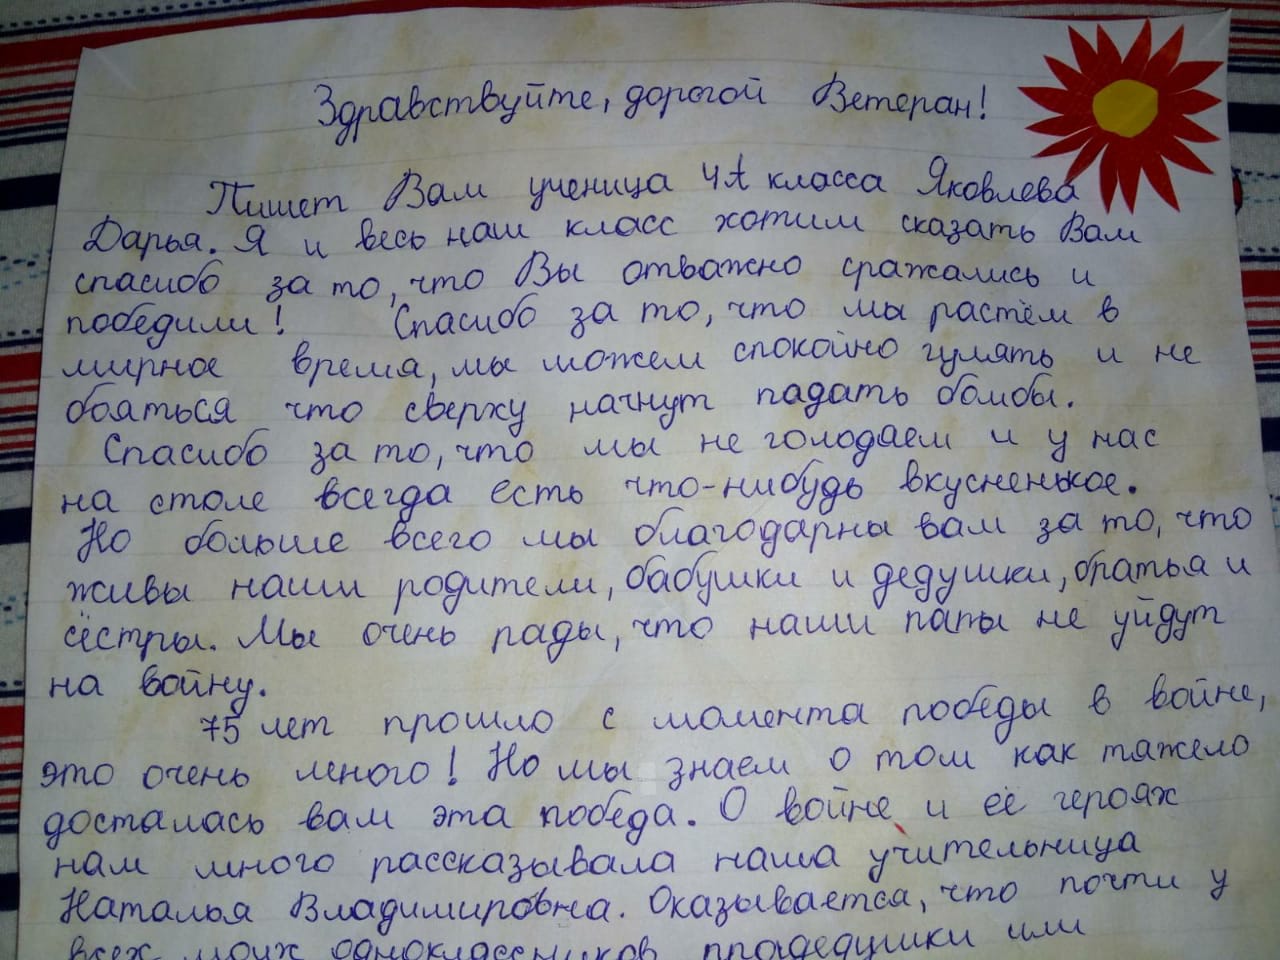 Здравствуйте, дорогой Ветеран!
Пишет Вам ученица 4А класса Яковлева
Дарья. Я и весь наш класс хотим сказать Вам
спасибо за то, что Вы отважно сражались и
победили! Спасибо за то, что мы растём в
мирное время, мы можем спокойно гулять и не
бояться что сверху начнут падать бомбы.
Спасибо за то, что мы не голодаем и у нас
на столе всегда есть что-нибудь вкусненькое.
Но больше всего мы благодарны вам за то, что
живы наши родители, бабушки и дедушки, братья и
сёстры. Мы очень рады, что наши папы не уйдут
на войну.
75 лет прошло с момента победы в войне,
это очень много! Но мы знаем о том как тяжело
досталась вам эта победа. О войне и её героях
нам много рассказывала наша учительница
Наталья Владимировна. Оказывается, что почти у
всех моих одноклассников прадедушки или